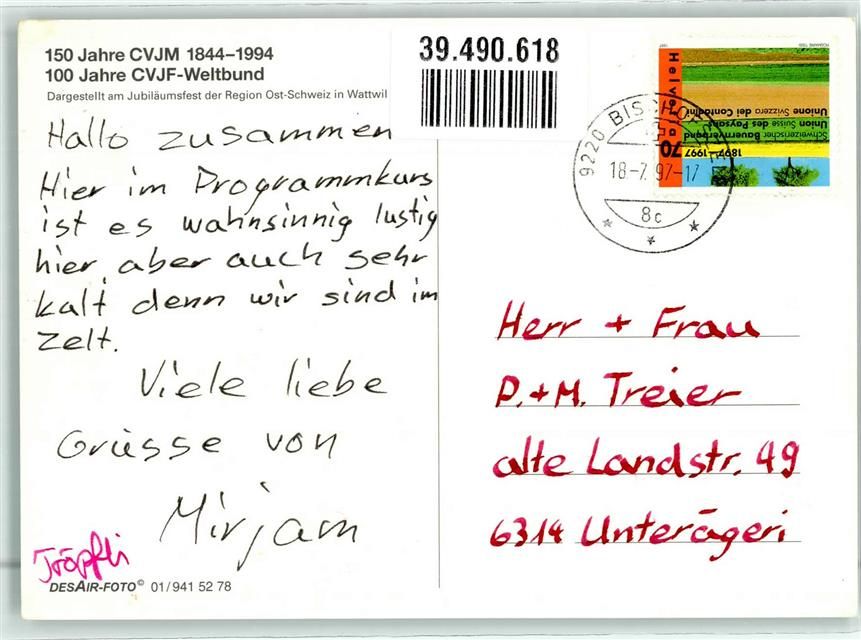 150 Jahre CVJM 1844–1994
100 Jahre CVJF-Weltbund
Dargestellt am Jubiläumsfest der Region Ost-Schweiz in Wattwil
Hallo zusammen
Hier im Programmkurs
ist es wahnsinnig lustig
hier, aber auch sehr
kalt denn wir sind im
Zelt.
Viele liebe
Grüsse von
Mirjam
Tröpfli
DESAIR-FOTO© 01/941 52 78
39.490.618
Helvetia
70
1897–1997
Schweizerischer Bauernverband
Union Suisse des Paysans
Unione Svizzera dei Contadini
9220 BISCHOFSZELL
18-7.97-17
8c
Herr + Frau
P.+M. Treier
alte Landstr. 49
6314 Unterägeri